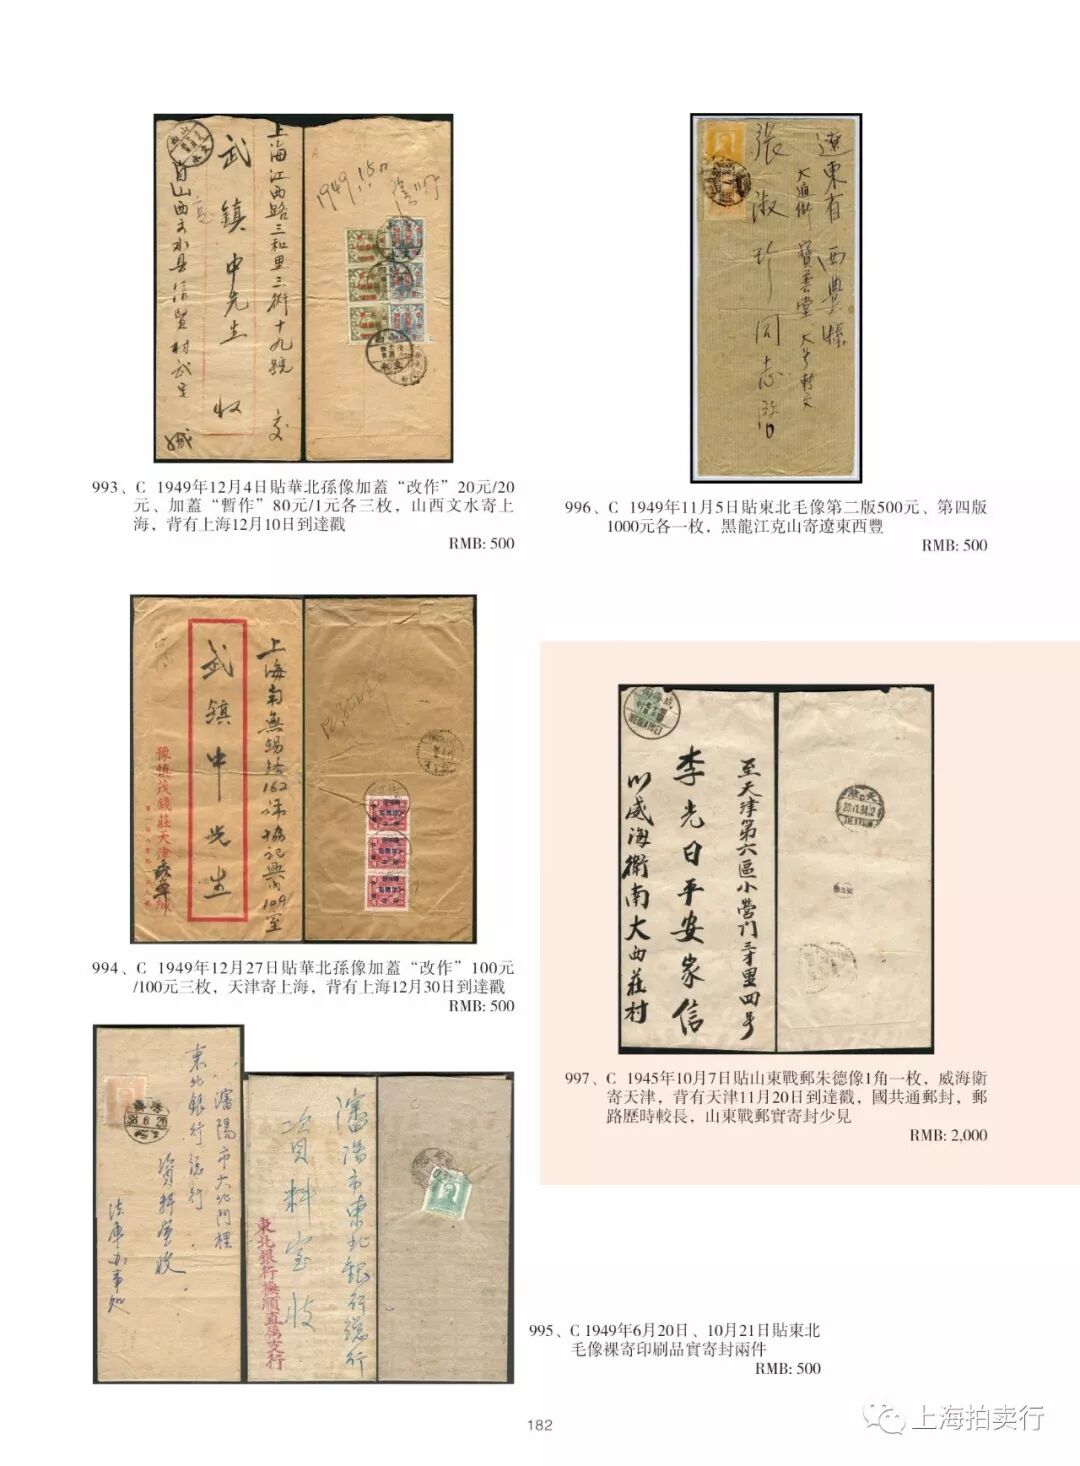 上海江西路三和里三衖十九號 交
武鎮中先生 收
自山西文水縣信賢村武
1949.
993、C 1949年12月4日貼華北孫像加蓋“改作”20元/20
元、加蓋“暫作”80元/1元各三枚，山西文水寄上
海，背有上海12月10日到達戳
RMB: 500
遼東省西豐縣
大通街寶善堂
張淑珍同志
996、C 1949年11月5日貼東北毛像第二版500元、第四版
1000元各一枚，黑龍江克山寄遼東西豐
RMB: 500
上海南無錫路162
109室
武鎮中先生
豫慎茂錢莊天津
994、C 1949年12月27日貼華北孫像加蓋“改作”100元
/100元三枚，天津寄上海，背有上海12月30日到達戳
RMB: 500
WEIHAIWEI
至天津第六區小營门三才里四号
李光日平安家信
以威海衛南大西莊村
TIENTSIN
997、C 1945年10月7日貼山東戰郵朱德像1角一枚，威海衛
寄天津，背有天津11月20日到達戳，國共通郵封，郵
路歷時較長，山東戰郵實寄封少見
RMB: 2,000
瀋陽市大北門裡
東北銀行總行
資料室收
法庫办事処
38.6.20
瀋陽市東北銀行總行
資料室收
東北銀行撫順直属支行
995、C 1949年6月20日、10月21日貼東北
毛像裸寄印刷品實寄封兩件
RMB: 500
182
上海拍卖行